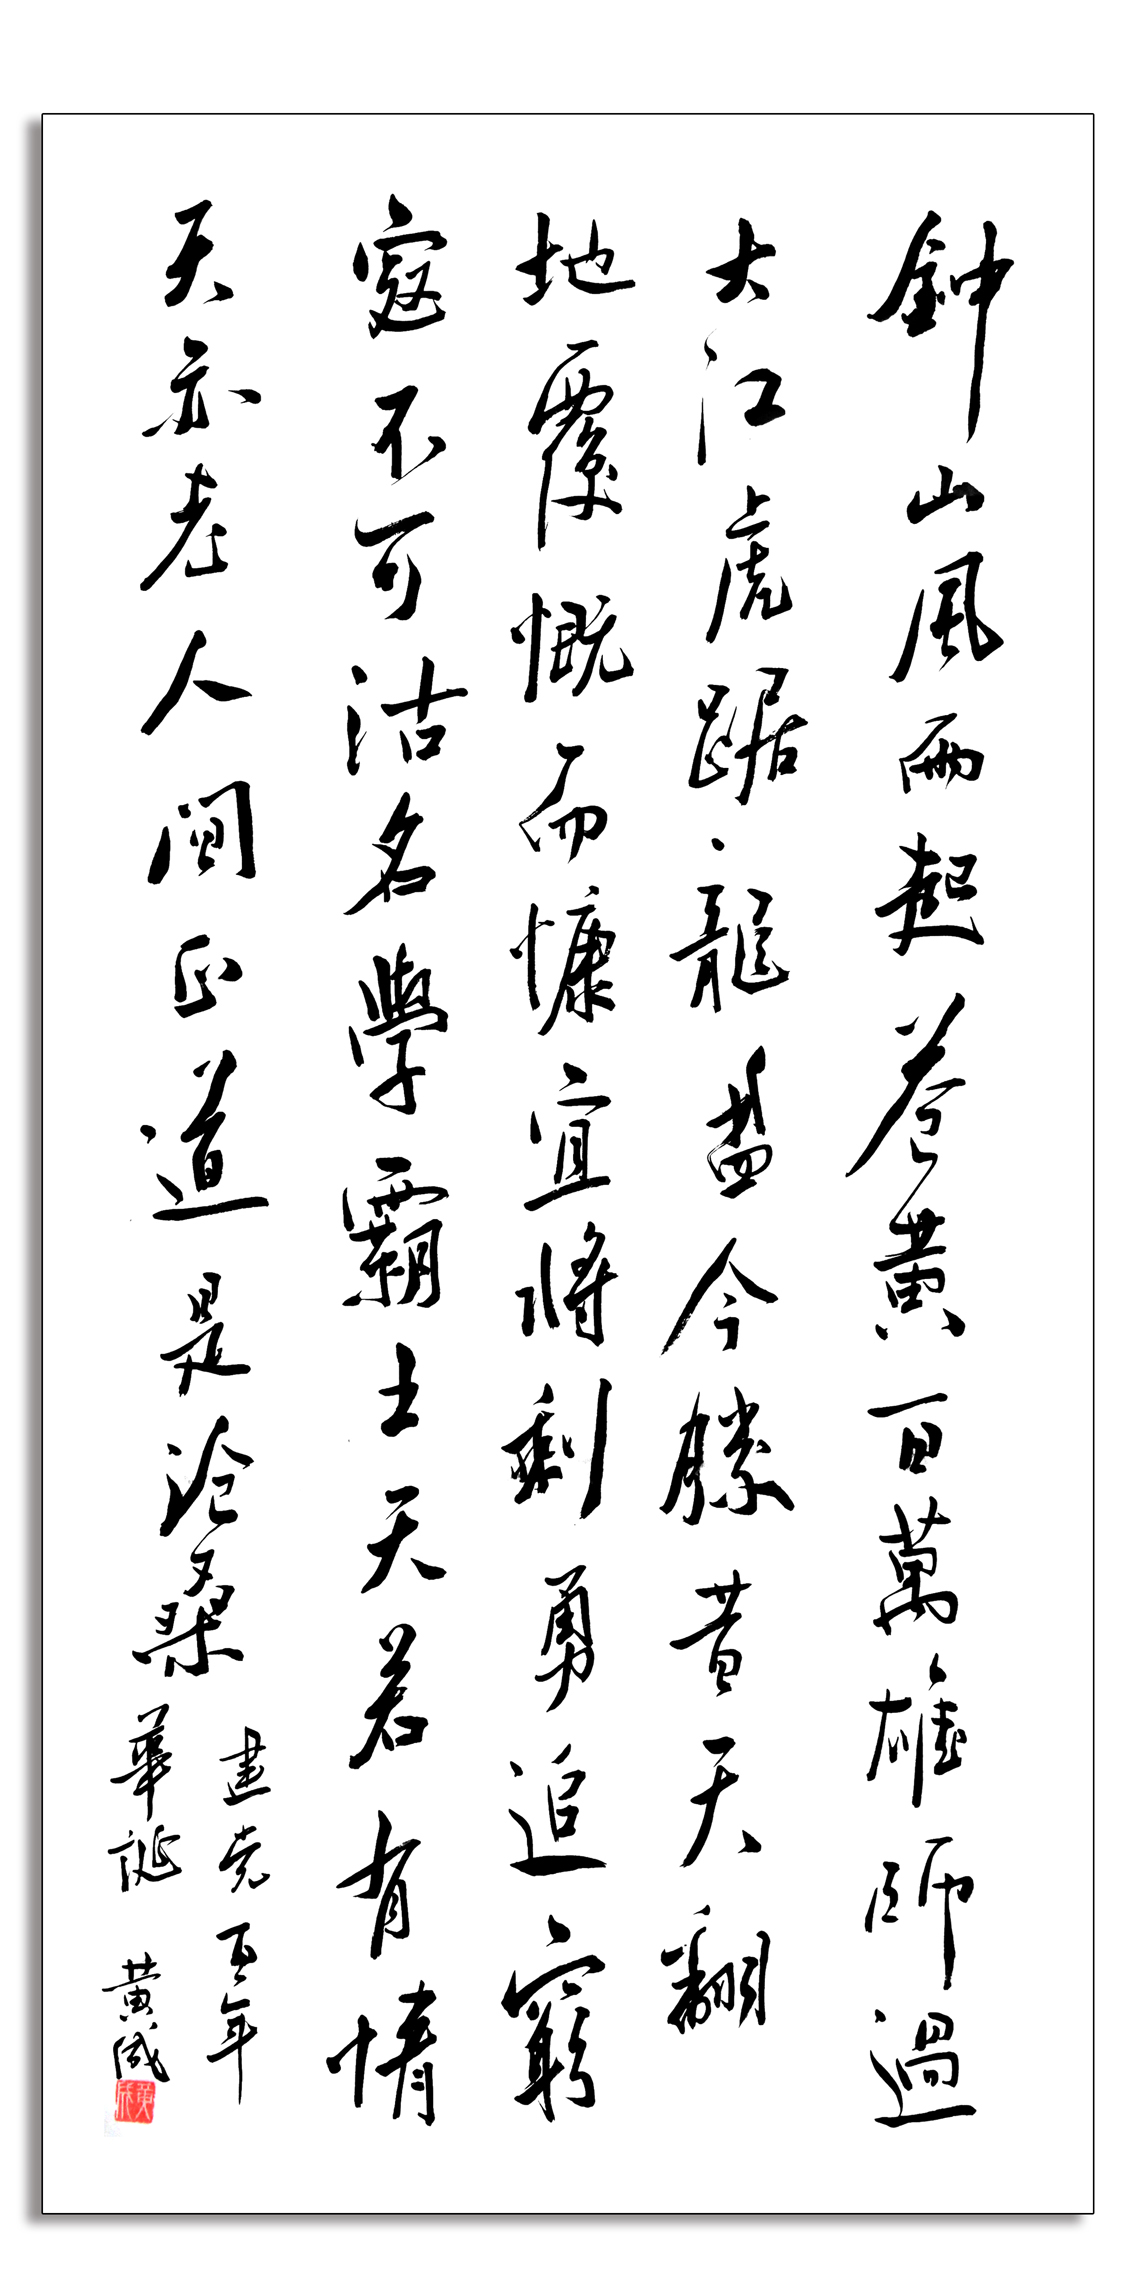 鈡山風雨起苍黄百萬雄師過
大江虎踞龍盘今勝昔天翻
地覆慨而慷宜將剩勇追窮
寇不可沽名學霸王天若有情
天亦老人間正道是沧桑
建党百年
華誕 黄成
黄成